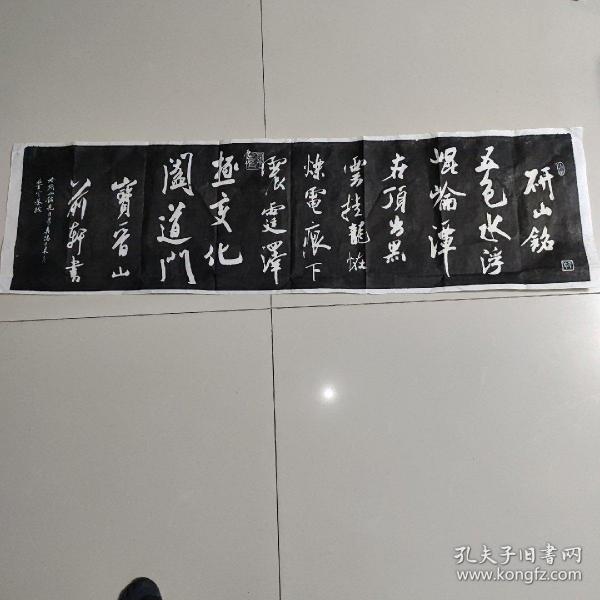 研山銘
五色水浮
崐崘潭
在頂出黑
雲挂龍怪
爍電痕下
震霆澤
極變化
闔道門
寶晉山
前軒書
孔夫子旧書网
www.kongfz.com